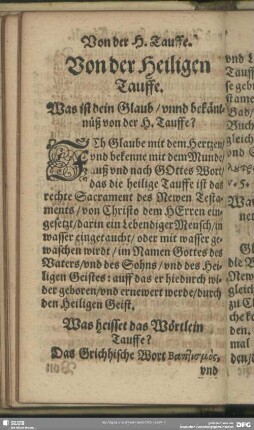 Von der H. Tauffe.
Von der Heiligen
Tauffe.
Was ist dein Glaub / vnnd bekänt-
nüß von der H. Tauffe?
ICh Glaube mit dem Hertzen /
vnd bekenne mit dem Munde /
auß vnd nach GOttes Wort /
das die heilige Tauffe ist das
rechte Sacrament des Newen Testa-
ments / von Christo dem HErren ein-
gesetzt / darin ein Lebendiger Mensch / in
wasser eingetaucht / oder mit wasser ge-
waschen wirdt / im Namen Gottes des
Vaters / vnd des Sohns / vnd des Hei-
ligen Geistes: auff das er hiedurch wi-
der geboren / vnd ernewert werde / durch
den Heiligen Geist.
Was heisset das Wörtlein
Tauffe?
Das Grichhische Wort βαπτισμὸς,
vnd
SLUB
DFG